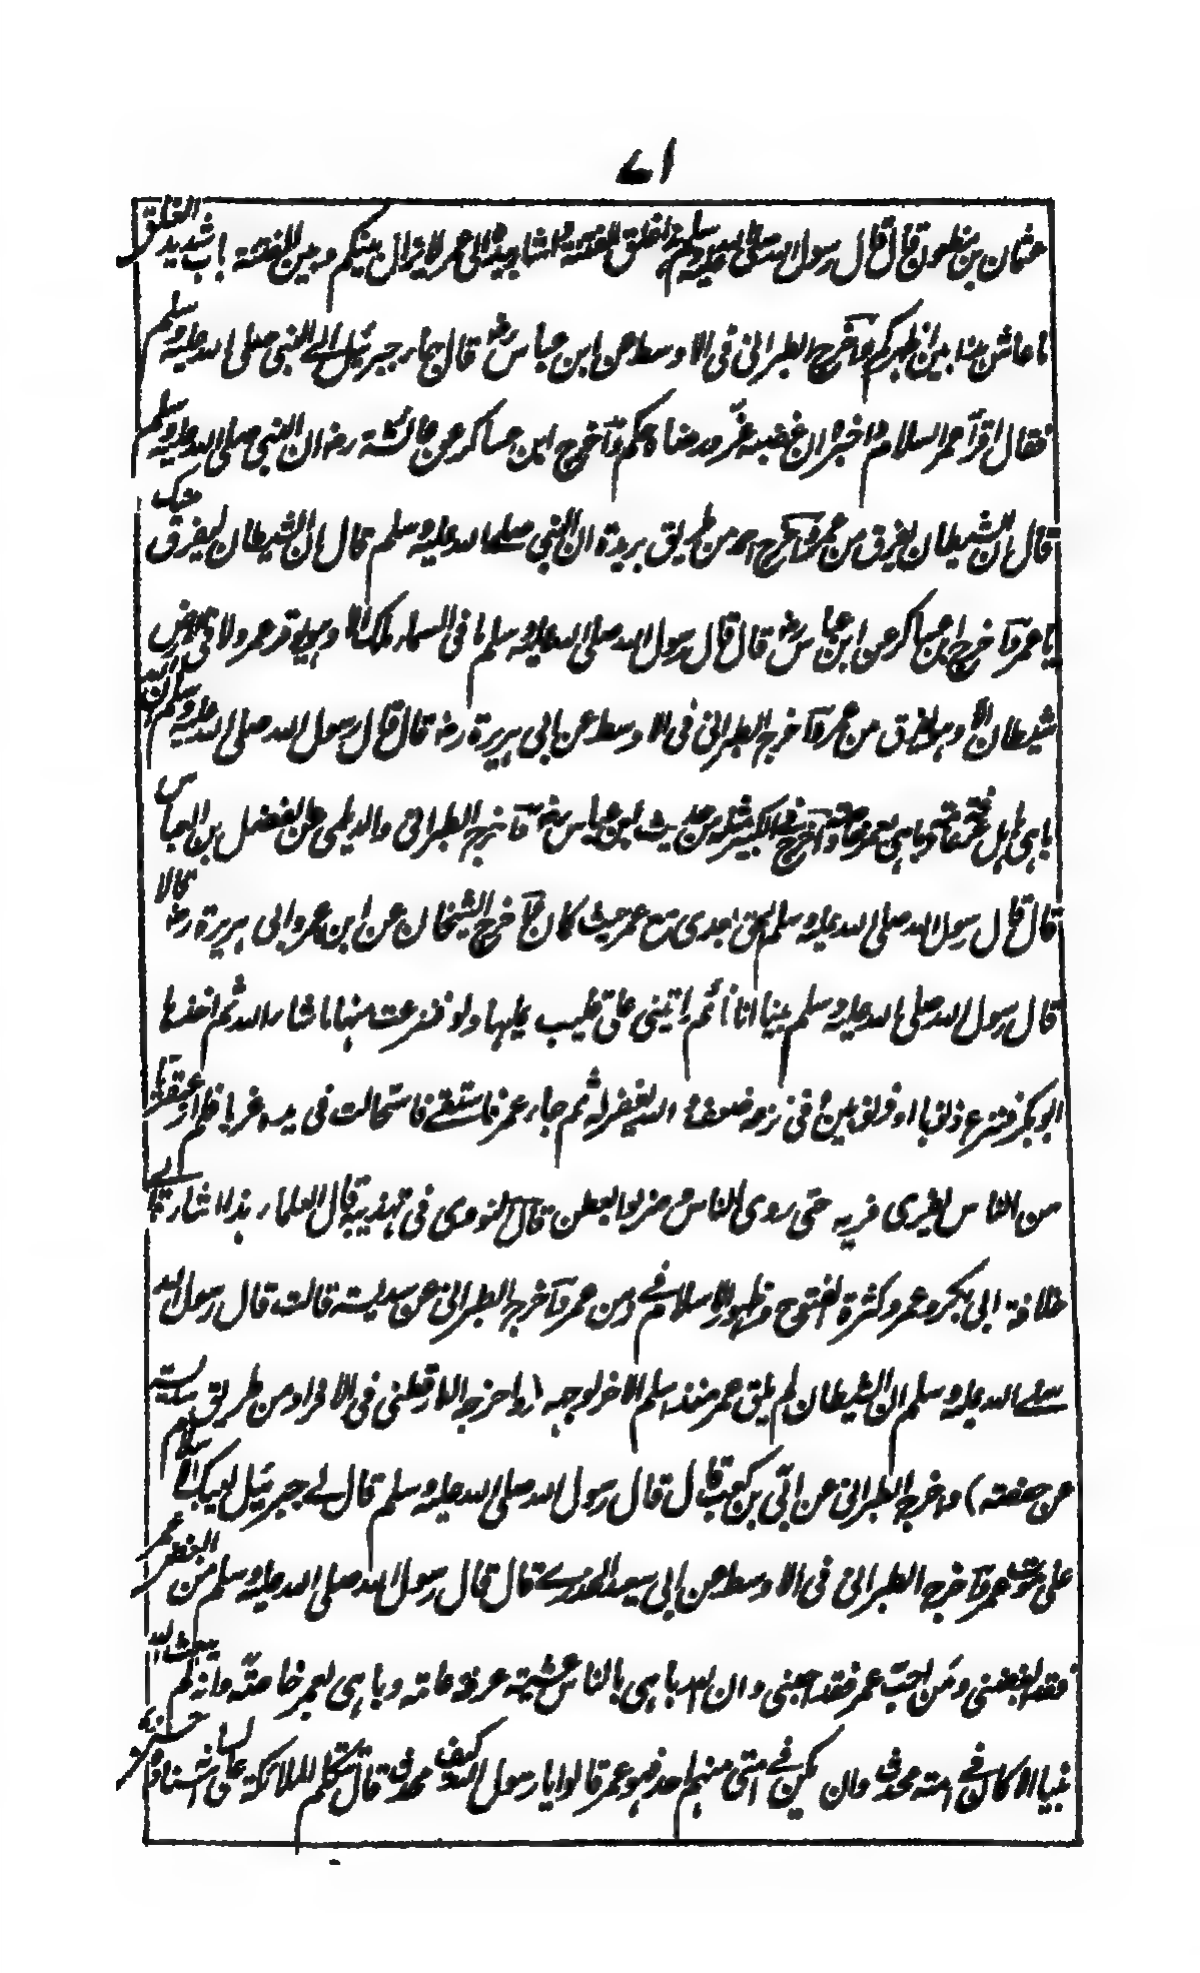 ۷۱
عثمان بن مظعون قال قال رسول الله صلى الله عليه وسلم هذا غلق الفتنة واشار بيده الى عمر لا يزال بينكم وبين الفتنة باب شديد الغلق
ما عاش هذا بين اظهركم وآخرج الطبرانى فى الاوسط عن ابن عباس رضه قال جاء جبرئيل الے النبى صلى الله عليه وسلم
فقال اقرأ عمر السلام واخبره ان غضبه عز ورضاه حكم وآخرج ابن عساكر عن عائشة رضه ان النبى صلى الله عليه وسلم
قال ان الشيطان يفرق من عمر وآخرج احمد من طريق بريدة ان النبي صلے الله عليه وسلم قال ان الشيطان ليفرق منك
يا عمر وآخرج ابن عساكر عن ابن عباس رضه قال قال رسول الله صلى الله عليه وسلم ما فى السماء ملك الا وهو يوقر عمر ولا فى الارض
شيطان الا وهو يفرق من عمر وآخرج الطبرانى فى الاوسط عن ابى هريرة رضه قال قال رسول الله صلى الله عليه وسلم ان الله
باهى باهل عرفة عامة وباهى بعمر خاصة وآخرج فى الكبير مثله من حديث ابن عباس رضه وآخرج الطبرانى والديلمى عن الفضل بن العباس
قال قال رسول الله صلى الله عليه وسلم الحق بعدى مع عمر حيث كان وآخرج الشيخان عن ابن عمر وابى هريرة رضه قالا
قال رسول الله صلى الله عليه وسلم بينا انا نائم رأيتنى على قليب عليها دلو فنزعت منها ما شاء الله ثم اخذها
ابو بكر فنزع ذنوبا او ذنوبين وفى نزعه ضعف والله يغفر له ثم جاء عمر فاستقے فاستحالت فى يده غربا فلم ار عبقريا
من الناس يفرى فريه حتى روى الناس وضربوا بعطن قال النووى فى تهذيبه قال العلماء هذا اشارة الے
خلافة ابى بكر وعمر وكثرة الفتوح وظهور الاسلام فے زمن عمر وآخرج الطبرانى عن سديسة قالت قال رسول الله
صلے الله عليه وسلم ان الشيطان لم يلق عمر منذ اسلم الا خر لوجهه (واخرجه الدارقطنى فى الافراد من طريق سديسة
عن حفصة) واخرج الطبرانى عن ابّى بن كعب قال قال رسول الله صلى الله عليه وسلم قال لے جبرئيل ليبك الاسلام
على موت عمر وآخرج الطبرانى فى الاوسط عن ابى سعيد الخدرے قال قال رسول الله صلى الله عليه وسلم من ابغض عمر
فقد ابغضنى ومن احبّ عمر فقد احبنى وان الله باهى بالناس عشية عرفة عامة وباهى بعمر خاصّة وانه لم يبعث الله
نبيا الا كان فے امته محدث وان يكن فے امتى منهم احد فهو عمر قالوا يا رسول الله كيف محدث قال تتكلم الملائكة على لسانه اسناده حسن